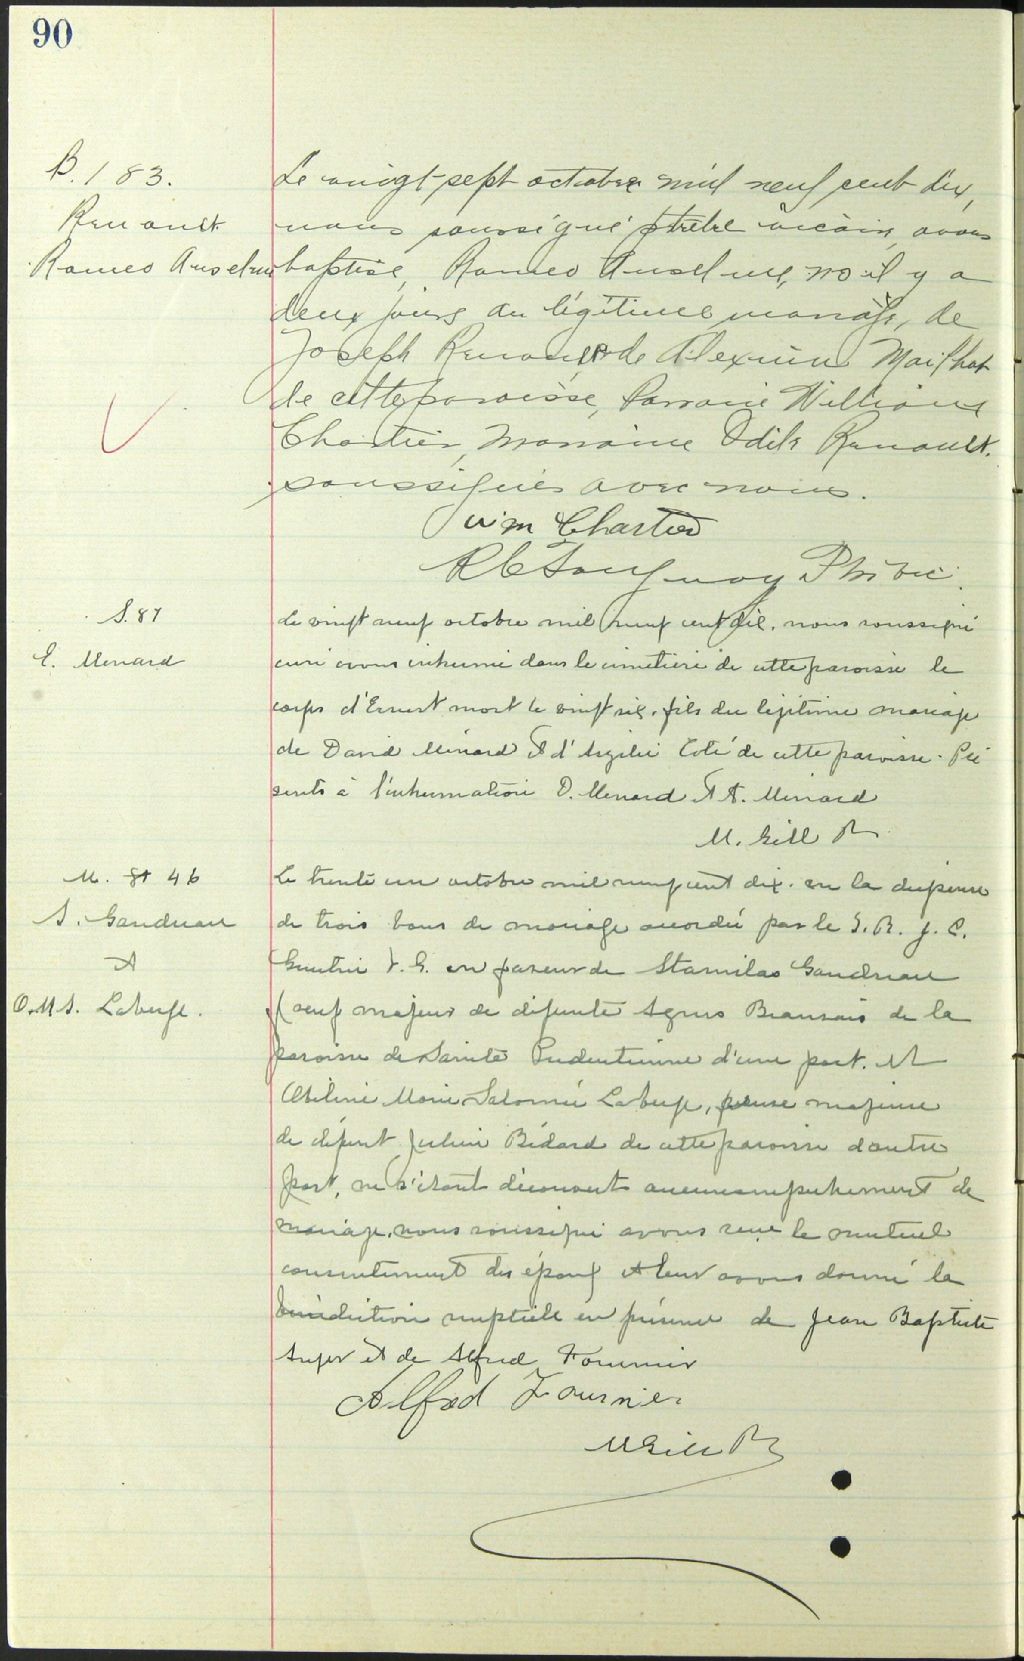 90
B. 183.
Renault
Romeo Anselme
Le vingt-sept octobre mil neuf cent dix,
nous soussigné prêtre vicaire, avons
baptisé, Romeo Anselme, né il y a
deux jours du légitime mariage, de
Joseph Renault & de Alexina Mailhot
de cette paroisse, Parrain William
Chartier, Marraine Odile Renault.
soussignés avec nous.
Wm Chartier
Ptre vic.
S. 87
E. Menard
Le vingt neuf octobre mil neuf cent dix, nous soussigné
curé avons inhumé dans le cimetière de cette paroisse le
corps d'Ernest mort le vingt six, fils du légitime mariage
de David Ménard et d'Azilie Coté de cette paroisse. Pré
sents à l'inhumation D. Menard et A. Menard
M. Gill Ptr
M. 46
S. Gaudreau
et
O.M.S. Laberge.
Le trente un octobre mil neuf cent dix. vu la dispense
de trois bans de mariage accordée par le T. R. J. C.
V. G. en faveur de Stanislas Gaudreau
veuf majeur de défunte Agnes de la
paroisse de Sainte Pudentienne d'une part. et
Marie Salomée Laberge, veuve majeure
de défunt Julien Bédard de cette paroisse d'autre
part, ne s'étant découvert aucun empêchement de
mariage, nous soussigné avons reçu le mutuel
consentement des époux et leur avons donné la
bénédiction nuptiale en présence de Jean Baptiste
et de Alfred Fournier
Alfred Fournier
M Gill Ptr